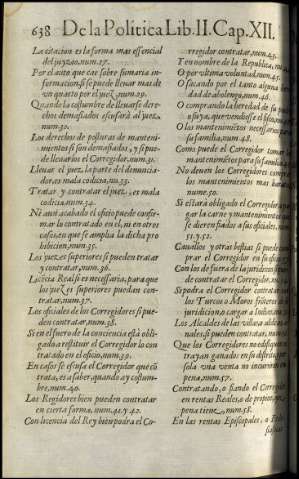 638 De la Politica Lib. II. Cap. XII.
La citacion es la forma mas essencial
del juyzio, num. 27.
Por el auto que cae sobre sumaria in-
formacion, si se puede llevar mas de
un quarto por el juez, num. 29.
Quando la costumbre de llevarse dere-
chos demasiados escusará al juez,
num. 30.
Los derechos de posturas de manteni-
mientos si son demasiados, y si pue-
de llevarlos el Corregidor, num. 31.
Llevar el juez, la parte del denuncia-
dor, es mala codicia, num. 33.
Tratar y contratar el juez, es mala
codicia, num. 34.
Ni aun acabado el oficio puede confir-
mar lo contratado en el, ni en otros
casos, en que se amplia la dicha pro
hibicion, num. 35.
Los juezes superiores si pueden tratar
y contratar, num. 36.
Licẽcia Real si es necessaria, para que
los juezes superiores puedan con-
tratar, num. 37.
Los oficiales de los Corregidores si pue-
den contratar, num. 38.
Si en el fuero de la conciencia está obli-
gado a restituir el Corregidor lo con
tratado en el oficio, num. 39.
En casos se escusa el Corregidor que cõ
trata, es a saber, quando ay costum-
bre, num. 40.
Los Regidores bien pueden contratar
en cierta forma, num. 41. y 42.
Con licencia del Rey bien podra el Co-
rregidor contratar, num. 43.
Y en nombre de la Republica, nu.
O por ultima voluntad, num. 45.
O sacando por el tanto alguna
dad de abolengo, num. 46.
O comprando la heredad de su
o suya, que vendiesse el
O los mantenimientos necessarios
su familia, num. 48.
Como puede el Corregidor tomar
mantenimientos para su familia, num.
No deven los Corregidores comprar
los mantenimientos mas
num. 50.
Si estará obligado el Corregidor a pa-
gar la carne y mantenimientos
se dieren fiados a sus oficiales,
y 51.
Cavallos y otras bestias si puede
prar el Corregidor, num.
Con los de fuera de la juridicion si
contratar el Corregidor, num.
Si podra el Corregidor contratar
los Turcos o Moros
juridicion, o cargar a Indias, num.
Los Alcaldes de las villas o aldeas
nales, si pueden contratar, num.
Que los Corregidores no
tra y an ganados en su distrito,
sola una venta no incurren
pena, num. 57.
Contratando, o fiando el Corregidor
en rentas Reales, o de propios, que
pena tiene, num. 58.
En las rentas Episcopales, o